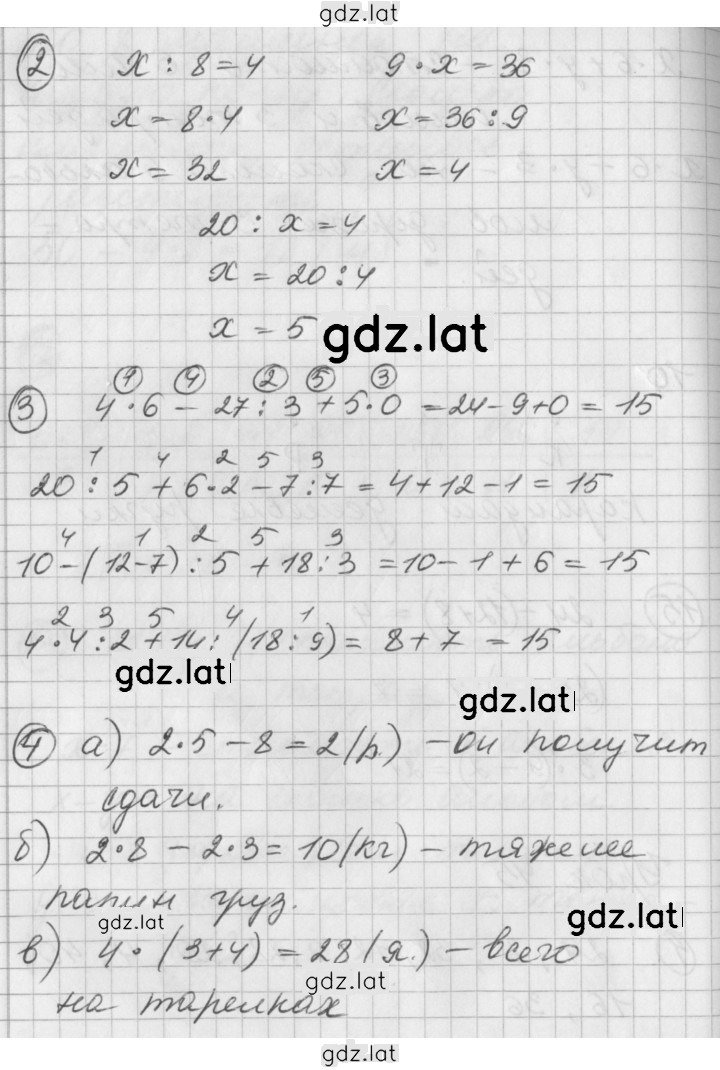 gdz.lat
2 x : 8 = 4 9 · x = 36
x = 8 · 4 x = 36 : 9
x = 32 x = 4
20 : x = 4
x = 20 : 4
x = 5
gdz.lat
1 4 2 5 3
3 4 · 6 − 27 : 3 + 5 · 0 = 24 − 9 + 0 = 15
1 4 2 5 3
20 : 5 + 6 · 2 − 7 : 7 = 4 + 12 − 1 = 15
4 1 2 5 3
10 − (12 − 7) : 5 + 18 : 3 = 10 − 1 + 6 = 15
2 3 5 4 1
4 · 4 : 2 + 14 : (18 : 9) = 8 + 7 = 15
gdz.lat
gdz.lat
4 а) 2 · 5 − 8 = 2 (р.) − он получит
сдачи.
б) 2 · 8 − 2 · 3 = 10 (кг) − тяжелее
папин груз.
gdz.lat
gdz.lat
в) 4 · (3 + 4) = 28 (я.) − всего
gdz.lat
на тарелках
gdz.lat